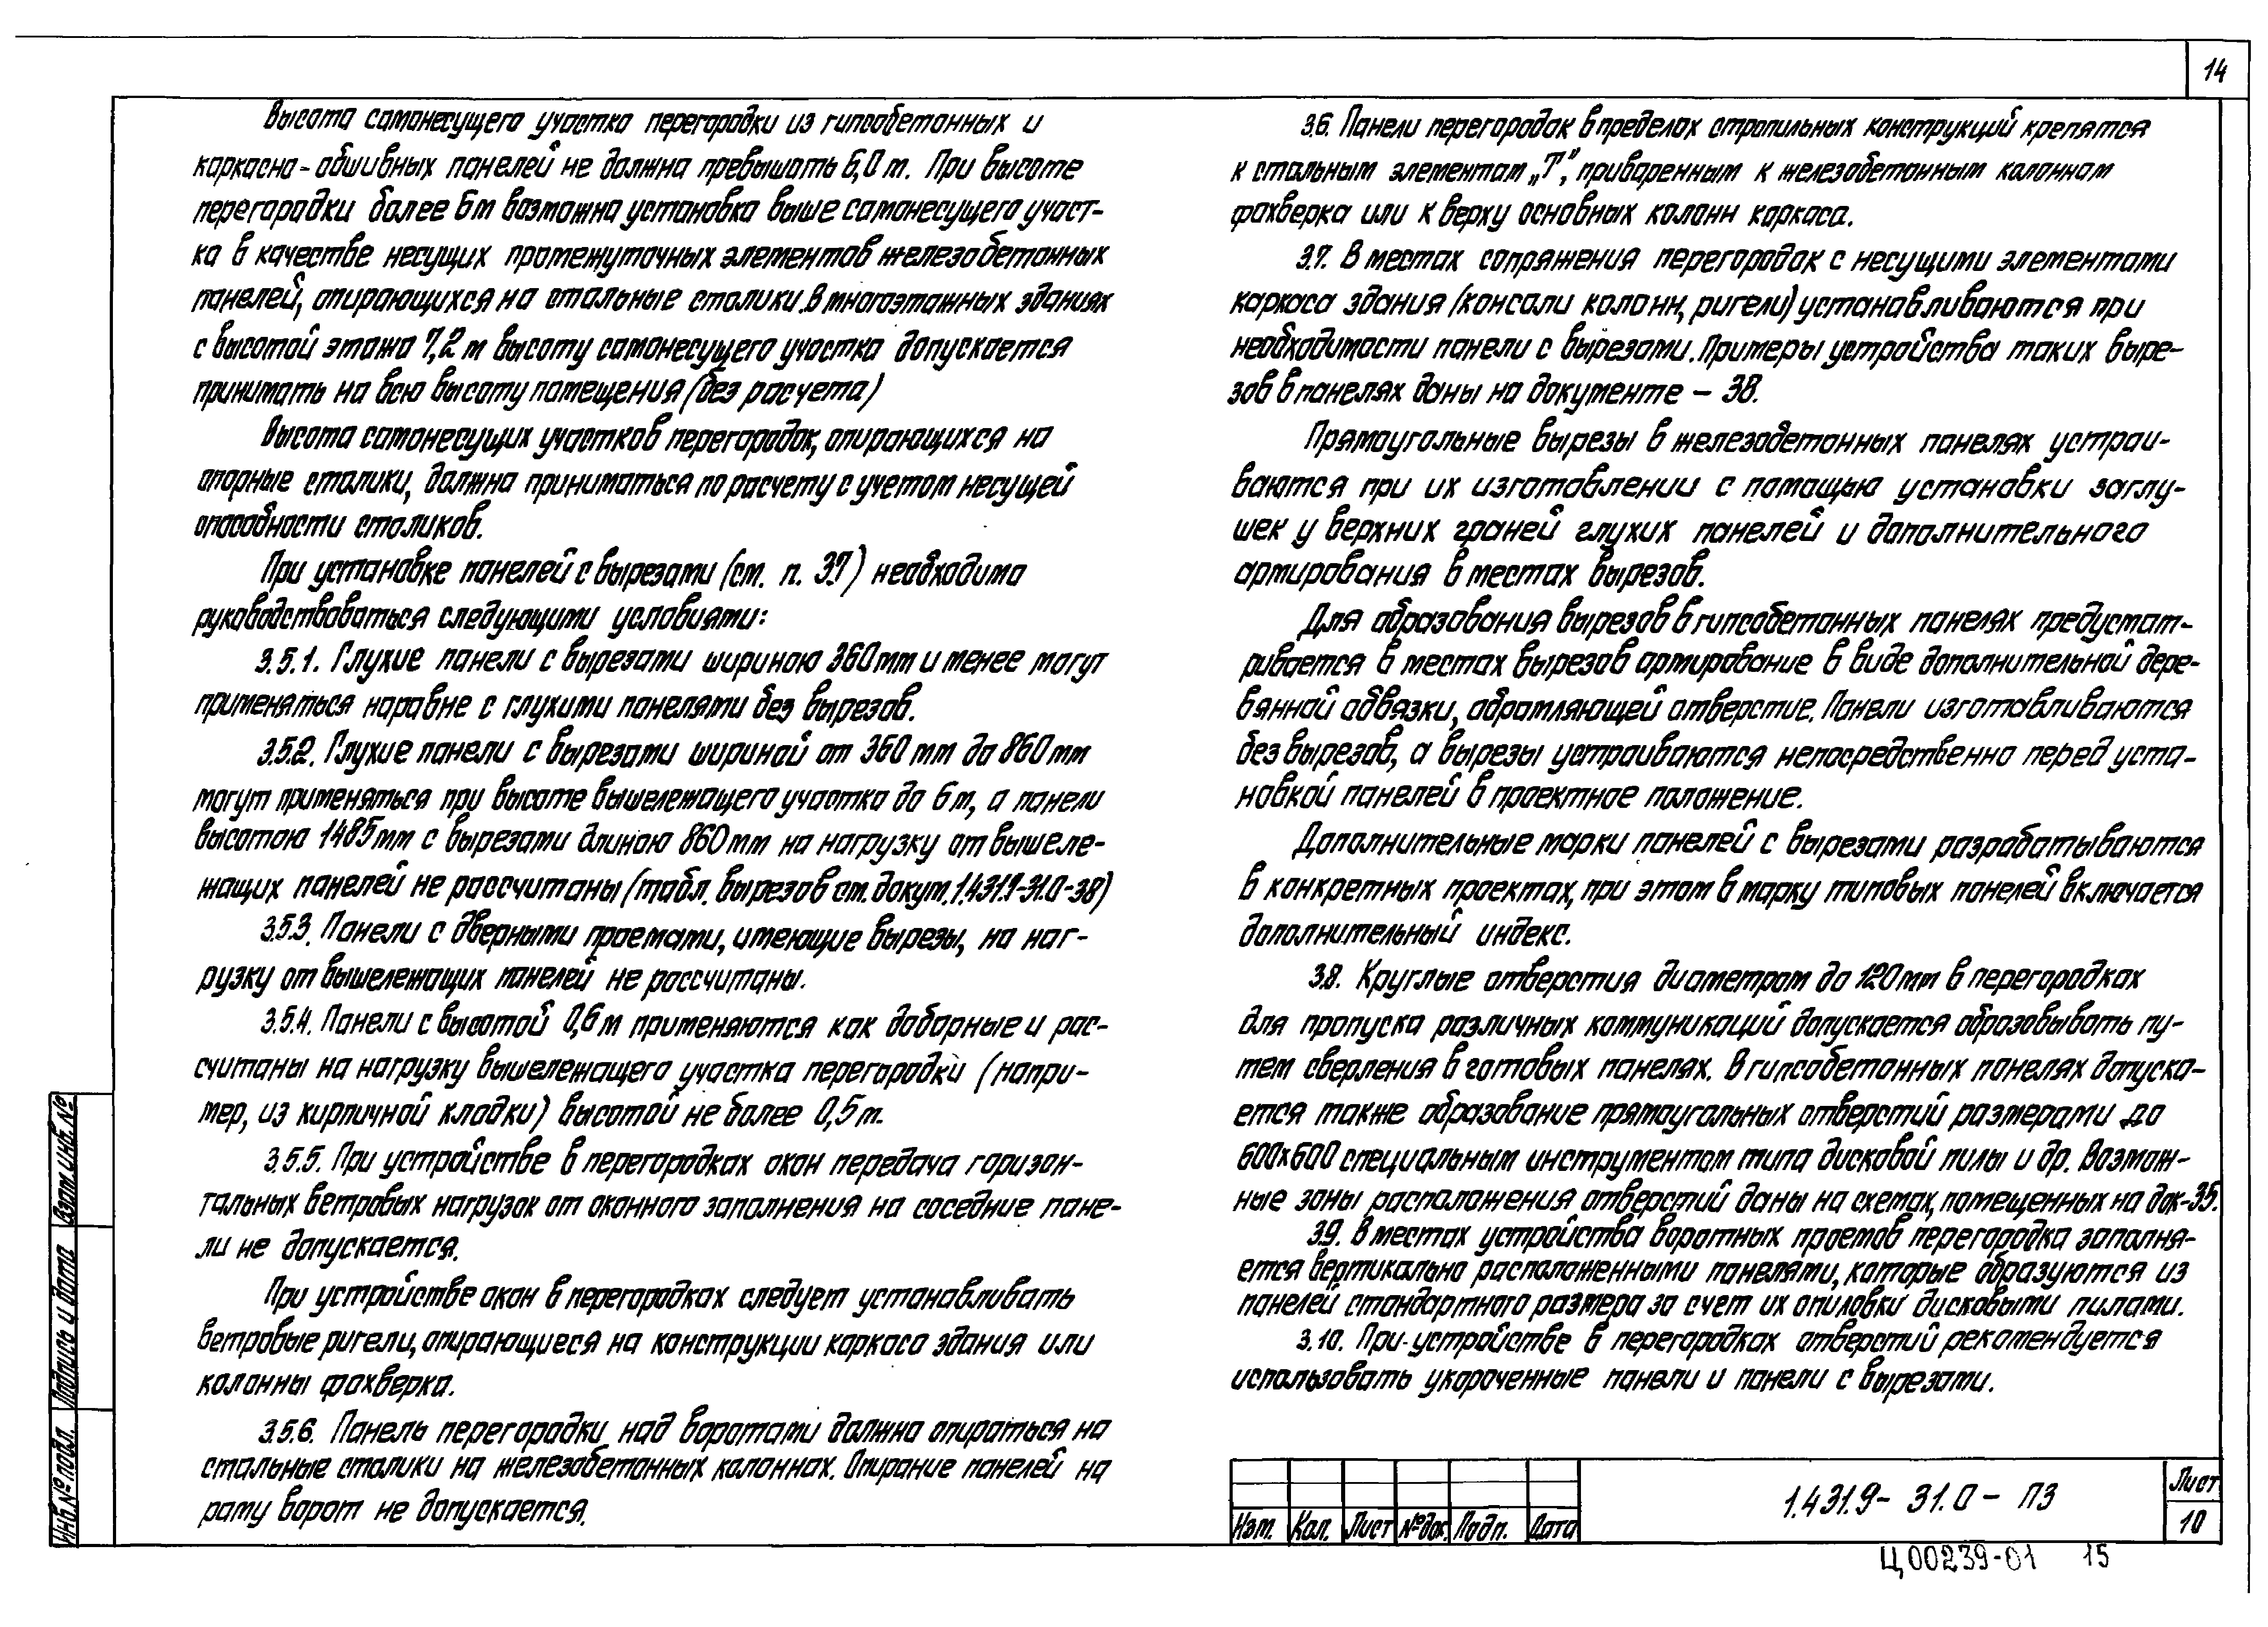 14
Высота самонесущего участка перегородки из гипсобетонных и
каркасно-обшивных панелей не должна превышать 6,0 м. При высоте
перегородки более 6м возможна установка выше самонесущего участ-
ка в качестве несущих промежуточных элементов железобетонных
панелей, опирающихся на стальные столики. В многоэтажных зданиях
с высотой этажа 7,2 м высоту самонесущего участка допускается
принимать на всю высоту помещения (без расчета)
Высота самонесущих участков перегородок, опирающихся на
опорные столики, должна приниматься по расчету с учетом несущей
способности столиков.
При установке панелей с вырезами (см. п. 3.7) необходимо
руководствоваться следующими условиями:
3.5.1. Глухие панели с вырезами шириною 360мм и менее могут
применяться наравне с глухими панелями без вырезов.
3.5.2. Глухие панели с вырезами шириной от 360 мм до 860мм
могут применяться при высоте вышележащего участка до 6 м, а панели
высотою 1485мм с вырезами длиною 860мм на нагрузку от вышеле-
жащих панелей не рассчитаны (табл. вырезов см. докум. 1.431.9-31.0-38)
3.5.3. Панели с дверными проемами, имеющие вырезы, на наг-
рузку от вышележащих панелей не рассчитаны.
3.5.4. Панели с высотой 0,6 м применяются как доборные и рас-
считаны на нагрузку вышележащего участка перегородки (напри-
мер, из кирпичной кладки) высотой не более 0,5 м.
3.5.5. При устройстве в перегородках окон передача горизон-
тальных ветровых нагрузок от оконного заполнения на соседние пане-
ли не допускается.
При устройстве окон в перегородках следует устанавливать
ветровые ригели, опирающиеся на конструкции каркаса здания или
колонны фахверка.
3.5.6. Панель перегородки над воротами должна опираться на
стальные столики на железобетонных колоннах. Опирание панелей на
раму ворот не допускается.
3.6. Панели перегородок в пределах стропильных конструкций крепятся
к стальным элементам „Т", приваренным к железобетонным колоннам
фахверка или к верху основных колонн каркаса.
3.7. В местах сопряжения перегородок с несущими элементами
каркаса здания (консоли колонн, ригели) устанавливаются при
необходимости панели с вырезами. Примеры устройства таких выре-
зов в панелях даны на документе – 38.
Прямоугольные вырезы в железобетонных панелях устраи-
ваются при их изготовлении с помощью установки заглу-
шек у верхних граней глухих панелей и дополнительного
армирования в местах вырезов.
Для образования вырезов в гипсобетонных панелях предусмат-
ривается в местах вырезов армирование в виде дополнительной дере-
вянной обвязки, обрамляющей отверстие. Панели изготавливаются
без вырезов, а вырезы устраиваются непосредственно перед уста-
новкой панелей в проектное положение.
Дополнительные марки панелей с вырезами разрабатываются
в конкретных проектах, при этом в марку типовых панелей включается
дополнительный индекс.
3.8. Круглые отверстия диаметром до 120мм в перегородках
для пропуска различных коммуникаций допускается образовывать пу-
тем сверления в готовых панелях. В гипсобетонных панелях допуска-
ется также образование прямоугольных отверстий размерами до
600х600 специальным инструментом типа дисковой пилы и др. Возмож-
ные зоны расположения отверстий даны на схемах, помещенных на док-35.
3.9. В местах устройства воротных проемов перегородка заполня-
ется вертикально расположенными панелями, которые образуются из
панелей стандартного размера за счет их опиловки дисковыми пилами.
3.10. При устройстве в перегородках отверстий рекомендуется
использовать укороченные панели и панели с вырезами.
Взам.инв.№
Подпись и дата
Инв.№ подл.
Изм. Кол. Лист №док. Подп. Дата
1.431.9- 31.0 - ПЗ
Лист
10
Ц00239-01 15